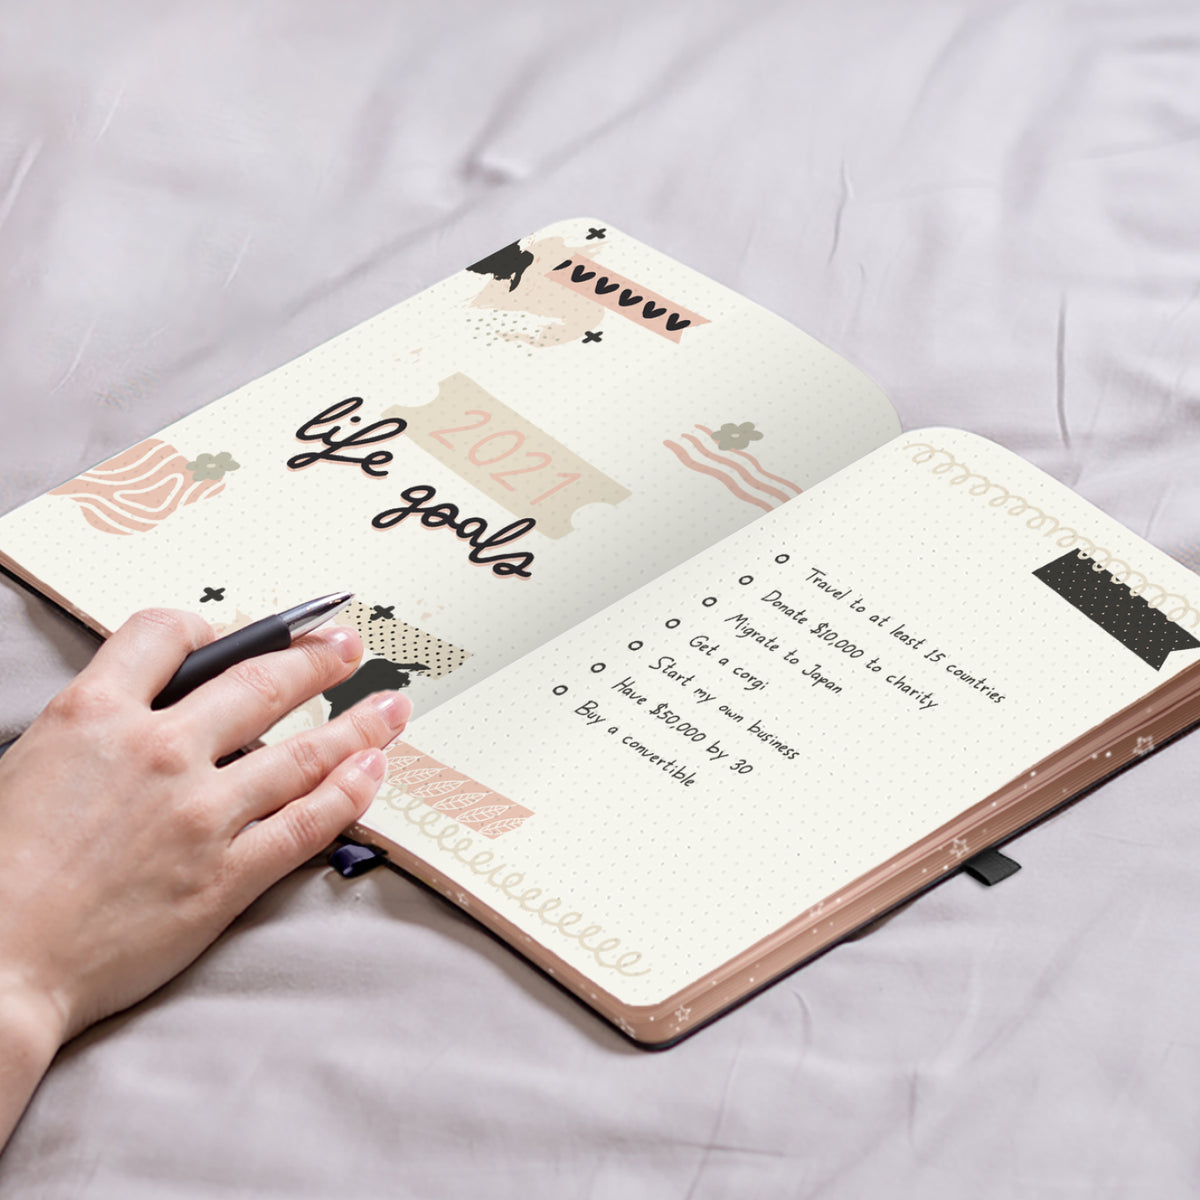 2021
life
goals
Travel to at least 15 countries
Donate $10,000 to charity
Migrate to Japan
Get a corgi
Start my own business
Have $50,000 by 30
Buy a convertible